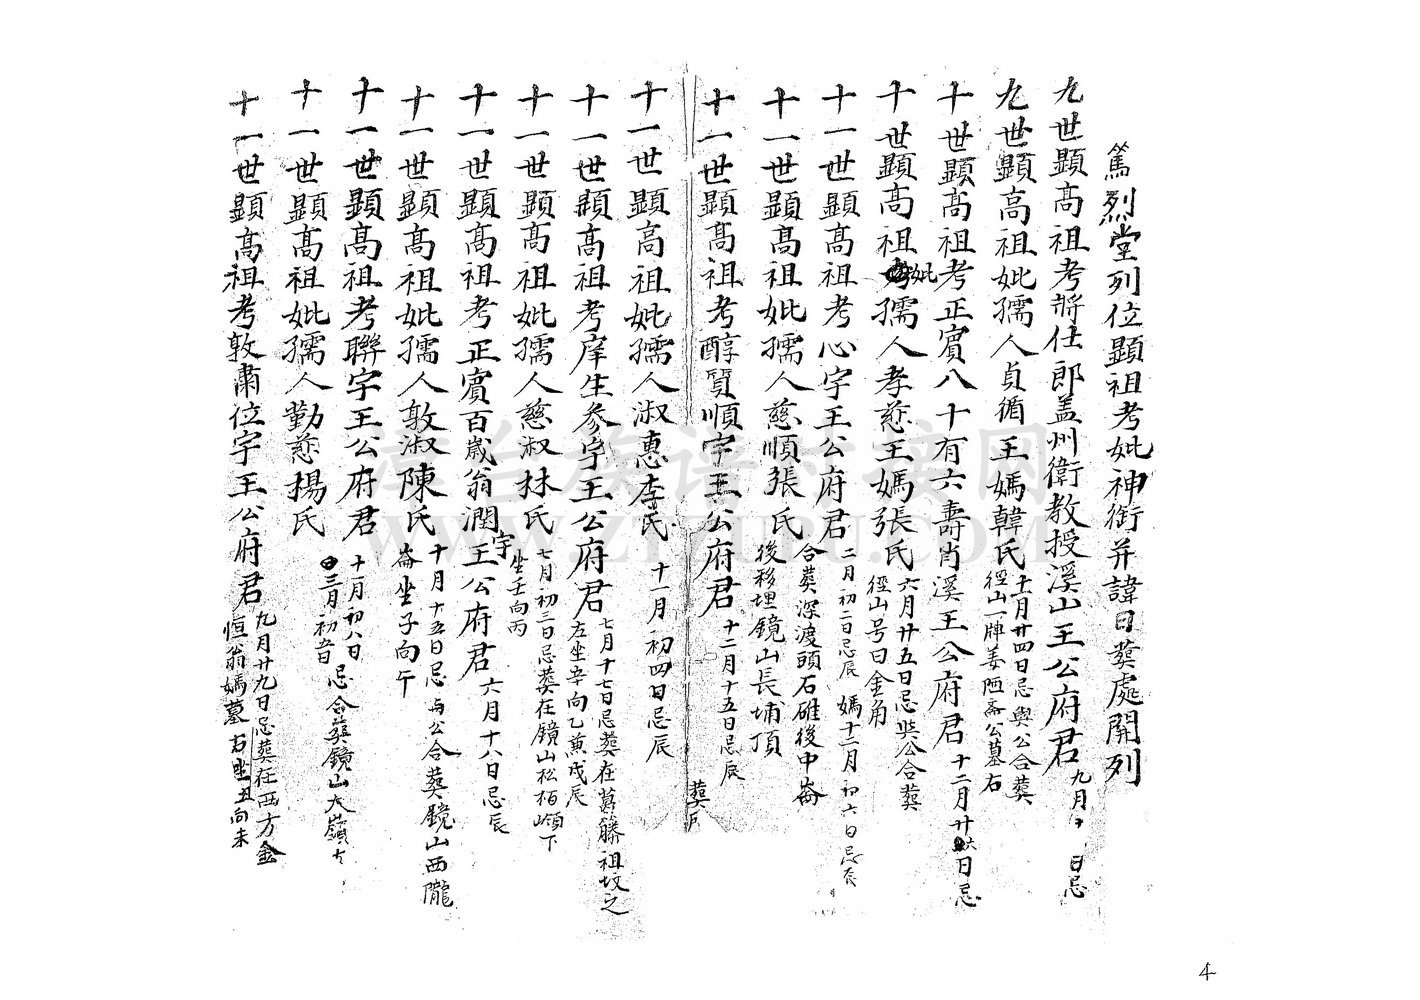 篤烈堂列位顯祖考妣神銜并諱日葬處開列
九世顯高祖考將仕郎盖州衛教授溪山王公府君 九月 日忌
九世顯高祖妣孺人貞循王媽韓氏 十一月廿四日忌與公合葬
徑山一牌姜陋斋公墓右
十世顯高祖考正賓八十有六壽肖溪王公府君 十二月廿六日忌
十世顯高祖妣孺人孝慈王媽張氏 六月廿五日忌與公合葬
徑山号曰金角
十一世顯高祖考心宇王公府君 二月初二日忌辰 媽十二月初六日忌辰
合葬深渡頭石碓後中崙
十一世顯高祖妣孺人慈順張氏 後移埋鏡山長埔頂
十一世顯高祖考醇質順宇王公府君 十二月十五日忌辰
葬于
十一世顯高祖妣孺人淑惠李氏 十一月初四日忌辰
十一世顯高祖考庠生參宇王公府君 七月十七日忌葬在葛籐祖坟之
左坐辛向乙兼戌辰
十一世顯高祖妣孺人慈淑林氏 七月初三日忌葬在鏡山松栢嶺下
坐壬向丙
十一世顯高祖考正賓百歲翁潤宇王公府君 六月十八日忌辰
十一世顯高祖妣孺人敦淑陳氏 十月十五日忌与公合葬鏡山西隴
崙坐子向午
十一世顯高祖考聯宇王公府君 十一月初八日忌合葬鏡山大嶺
十一世顯高祖妣孺人勤慈揚氏 三月初
十一世顯高祖考敦肅位宇王公府君 九月廿九日忌葬在西方金
恒翁媽墓右坐丑向未
4
漳台族谱对接网
WWW.ZTZUPU.COM